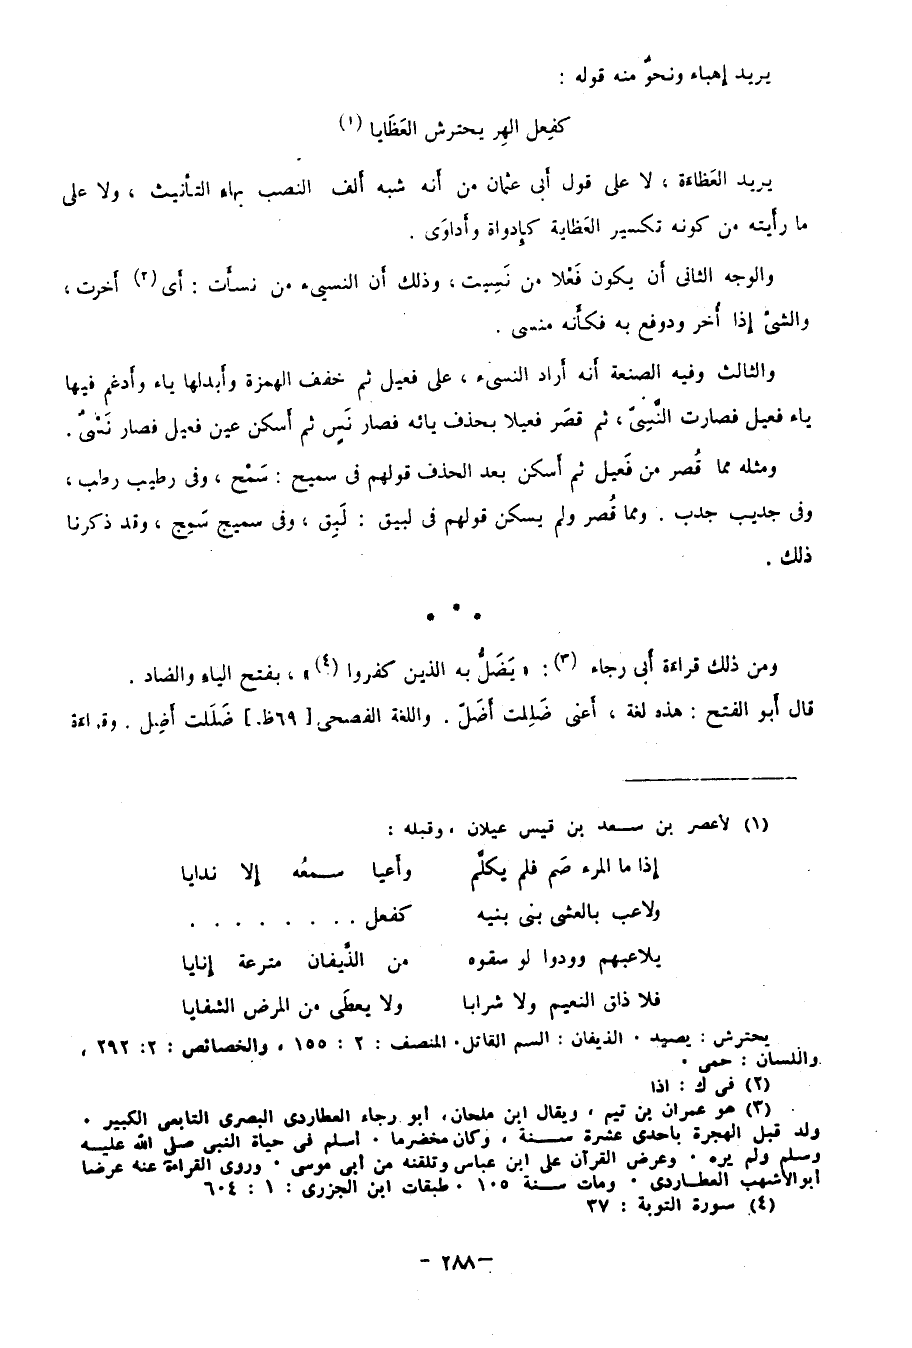 يريد إهباء ونحوٌ منه قوله :
كفِعل الهِر يحترش العَظَايا (١)
يريد العَظاءة ، لا على قول أبى عثمان من أنه شبه ألف النصب بهاء التأنيث ، ولا على
ما رأيته من كونه تكسير العَظاية كإدواة وأداوَى .
والوجه الثانى أن يكون فَعْلا من نَسِيت ، وذلك أن النسىء من نسأت : أى (٢) أخرت ،
والشئ إذا أُخر ودوفع به فكأنه منسى .
والثالث وفيه الصنعة أنه أراد النسىء ، على فعيل ثم خفف الهمزة وأبدلها ياء وأدغم فيها
ياء فعيل فصارت النَّسِىّ ، ثم قصَر فعيلا بحذف يائه فصار نَسٍ ثم أسكن عين فعيل فصار نَسْىٌ .
ومثله مما قُصر من فَعيل ثم أسكن بعد الحذف قولهم فى سميح : سَمْح ، وفى رطيب رطب ،
وفى جديب جدب . ومما قُصر ولم يسكن قولهم فى لبيق : لَبِق ، وفى سميج سَمِج ، وقد ذكرنا
ذلك .
• • •
ومن ذلك قراءة أبى رجاء (٣) : « يَضَلُّ به الذين كفروا (٤) » ، بفتح الياء والضاد .
قال أبو الفتح : هذه لغة ، أعنى ضَلِلت أضَلّ . واللغة الفصحى [ ٦٩ظ ] ضَلَلت أضِل . وقراءة
(١) لأعصر بن سعد بن قيس عيلان ، وقبله :
إذا ما المرء صَم فلم يكلَّم وأعيا سمعُه إلا ندايا
ولاعب بالعشى بنى بنيه كفعل . . . . . . . .
يلاعبهم وودوا لو سقوه من الذَّيفان مترعة إنايا
فلا ذاق النعيم ولا شرابا ولا يعطَى من المرض الشفايا
يحترش : يصيد . الذيفان : السم القاتل . المنصف : ٢ : ١٥٥ ، والخصائص : ٢ : ٢٩٢ ،
واللسان : حمى .
(٢) فى ك : اذا
(٣) هو عمران بن تيم ، ويقال ابن ملحان ، أبو رجاء العطاردى البصرى التابعى الكبير .
ولد قبل الهجرة باحدى عشرة سنة ، وكان مخضرما . أسلم فى حياة النبى صلى الله عليه
وسلم ولم يره . وعرض القرآن على ابن عباس وتلقنه من أبى موسى . وروى القراءة عنه عرضا
أبو الأشهب العطاردى . ومات سنة ١٠٥ . طبقات ابن الجزرى : ١ : ٦٠٤
(٤) سورة التوبة : ٣٧
- ٢٨٨ -